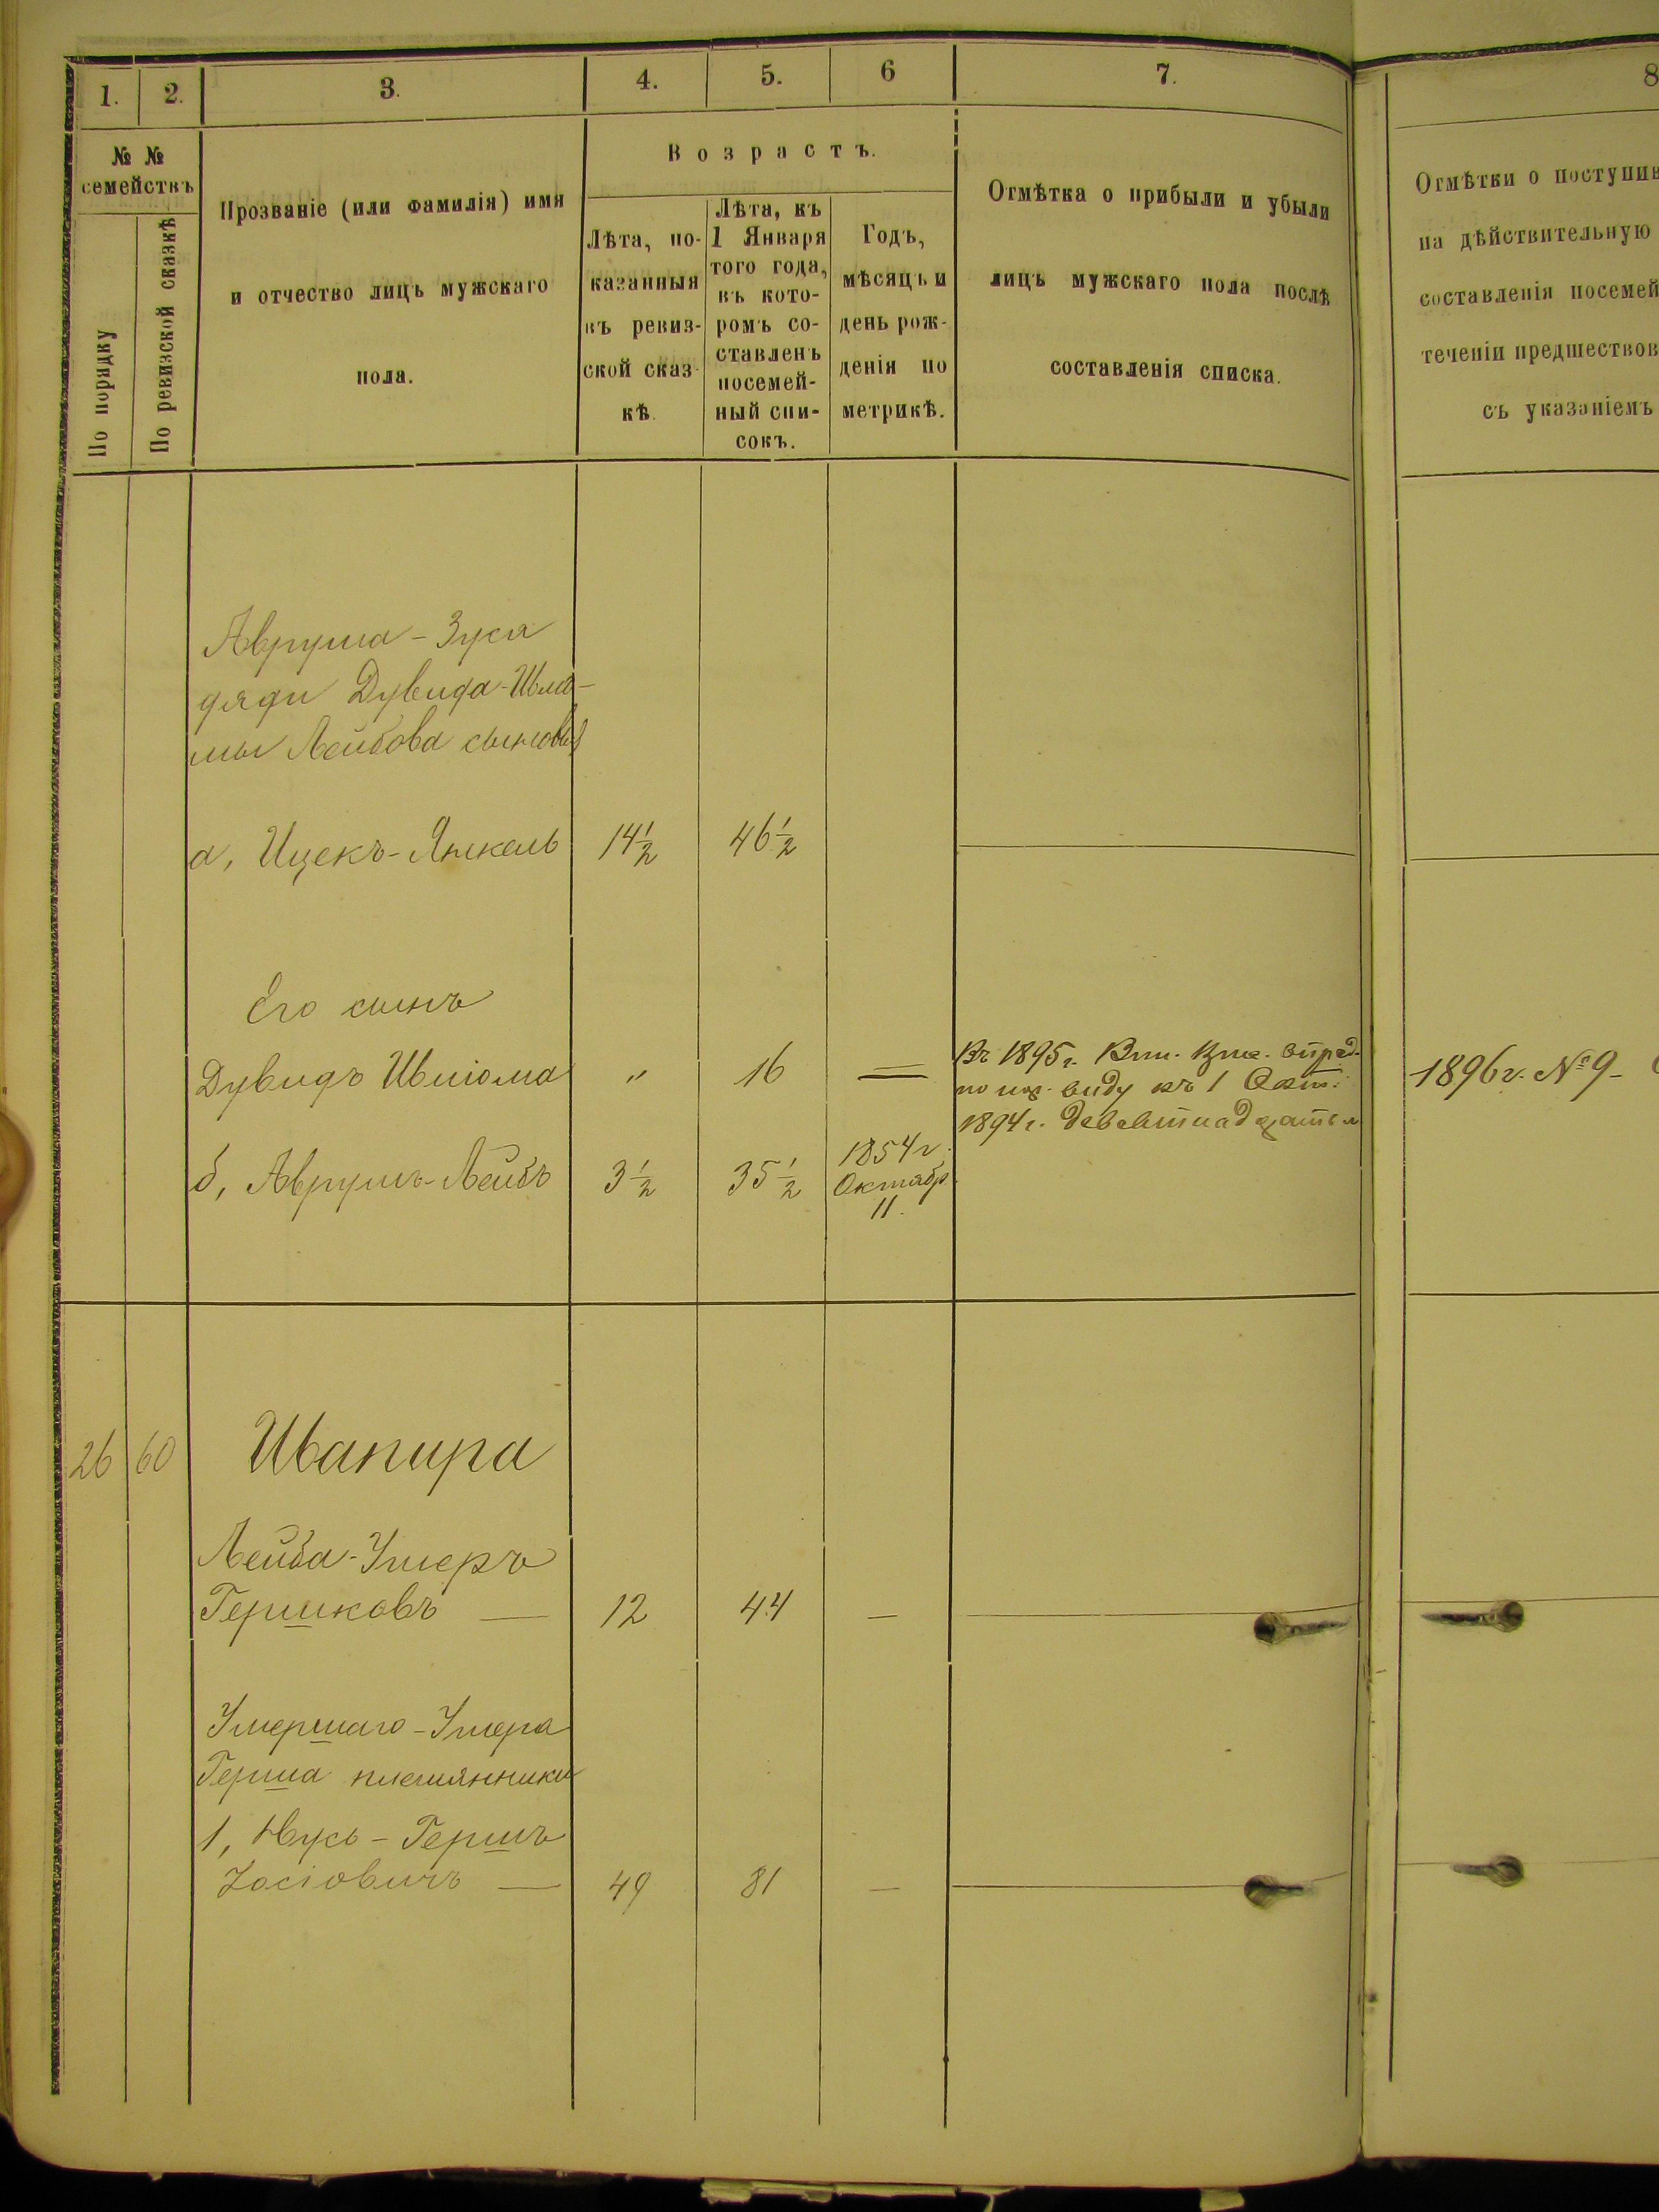 1. 2. 3. 4. 5. 6 7. 8
№ №
семействъ
По порядку
По ревизской сказкѣ
Прозваніе (или фамилія) имя
и отчество лицъ мужскаго
пола.
Возрастъ.
Лѣта, по-
казанныя
въ ревиз-
ской сказ-
кѣ.
Лѣта, къ
1 Января
того года,
въ кото-
ромъ со-
ставленъ
посемей-
ный спи-
сокъ.
Годъ,
мѣсяцъ и
день рож-
денія по
метрикѣ.
Отмѣтка о прибыли и убыли
лицъ мужскаго пола послѣ
составленія списка.
Отмѣтки о поступив
на дѣйствительную
составленія посемей
теченіи предшествов
съ указаніемъ
Аврума-Зуся
дяди Дувида-Шлё-
мы Лейбова сыновья
а, Ицекъ-Янкель 14½ 46½
Его сынъ
Дувидъ Шлiома " 16 —
Въ 1895г. опред.
по виду къ 1 Окт.
1894г. девятнадцать л
1896г. № 9
б, Аврумъ-Лейбъ 3½ 35½
1854г.
Октябр.
11.
26 60 Шапира
Лейба-Умеръ
Гершковъ — 12 44 —
Умершаго-Умера
Герша племянники
1, Нусь-Гершъ
Іосіовичъ — 49 81 —